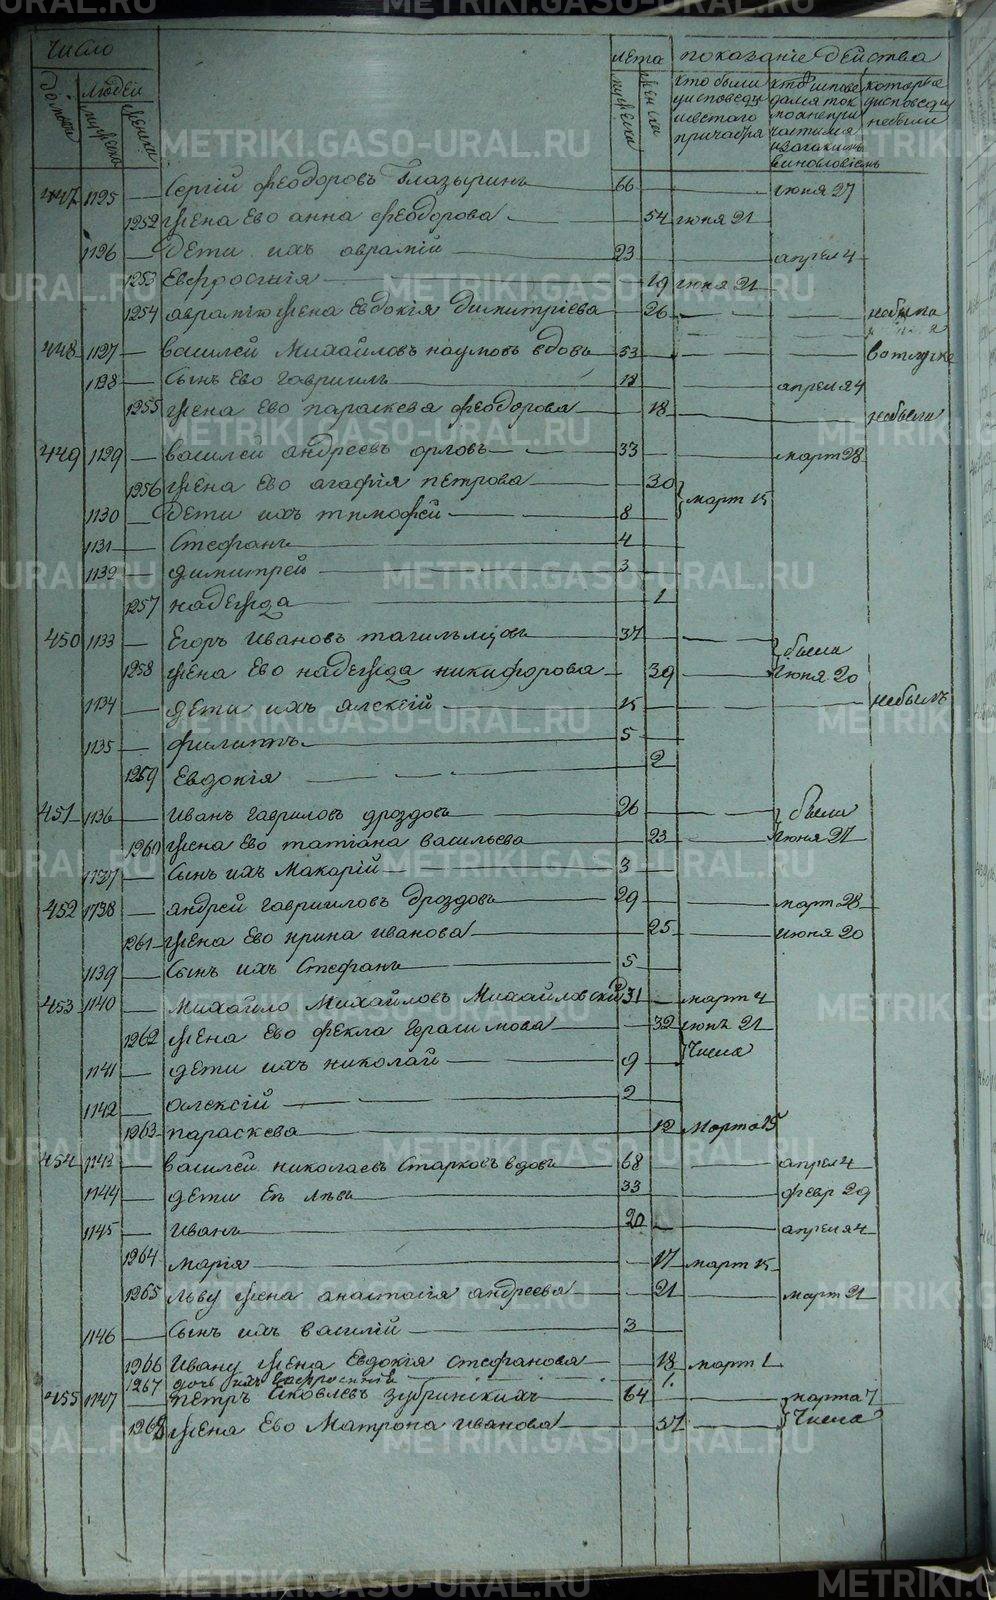 число лета показаніе действа
домовъ людей мужеска женски мужеска женски
кто были у исповеди и святого причастия
которые исповеди не были
447 1125 Сергій Феодоровъ Глазыринъ 66 июня 27
1252 жена Ево анна Феодорова 54 июня 21
1126 дети ихъ аврамій 23 апрел 4
1253 Евфросинія 19 июня 21
1254 аврамію жена Евдокія Димитріева 26 небыла
448 1127 василей Михайловъ наумовъ вдовъ 53 вотлучке
1128 Сынъ Ево Гавриилъ 18 апреля 4
1255 жена Ево параскева Феодорова 18 небыла
449 1129 василей андреевъ орловъ 33 март 28
1256 жена Ево агафія петрова 30 март 15
1130 дети ихъ тимофей 8
1131 Стефанъ 4
1132 димитрей 3
1257 надежда 1
450 1133 Егоръ Ивановъ тагильцовъ 37 были
1258 жена Ево надежда никифорова 39 июня 20
1134 дети ихъ алексій 15 небылъ
1135 филиппъ 5
1259 Евдокія 2
451 1136 Иванъ гавриловъ дроздовъ 26 были
1260 жена Ево татіана васильева 23 июня 21
1137 Сынъ ихъ Макарій 3
452 1138 андрей гаврииловъ дроздовъ 29 март 28
1261 жена Ево ирина иванова 25 июня 20
1139 Сынъ ихъ Стефанъ 5
453 1140 Михайло Михайловъ Михайловский 31 март 4
1262 жена Ево фекла Герасимова 32 июнь 21
1141 дети ихъ николай 9 Числа
1142 алексій 2
1263 параскева 12 Марта 15
454 1143 василей николаевъ Старковъ вдовъ 68 апрел 4
1144 дети Ево левъ 33 февр 29
1145 иванъ 20 апреля 4
1264 марія 17 март 15
1265 льву жена анастасія андреева 21 март 21
1146 Сынъ ихъ василій 3
1266 Ивану жена Евдокія Стефанова 18 март 1
1267 дочь ихъ Евфросинія 1
455 1147 петръ Яковлевъ зубринскихъ 64 марта 7
1268 жена Ево Матрона иванова 57 Числа
METRIKI.GASO-URAL.RU